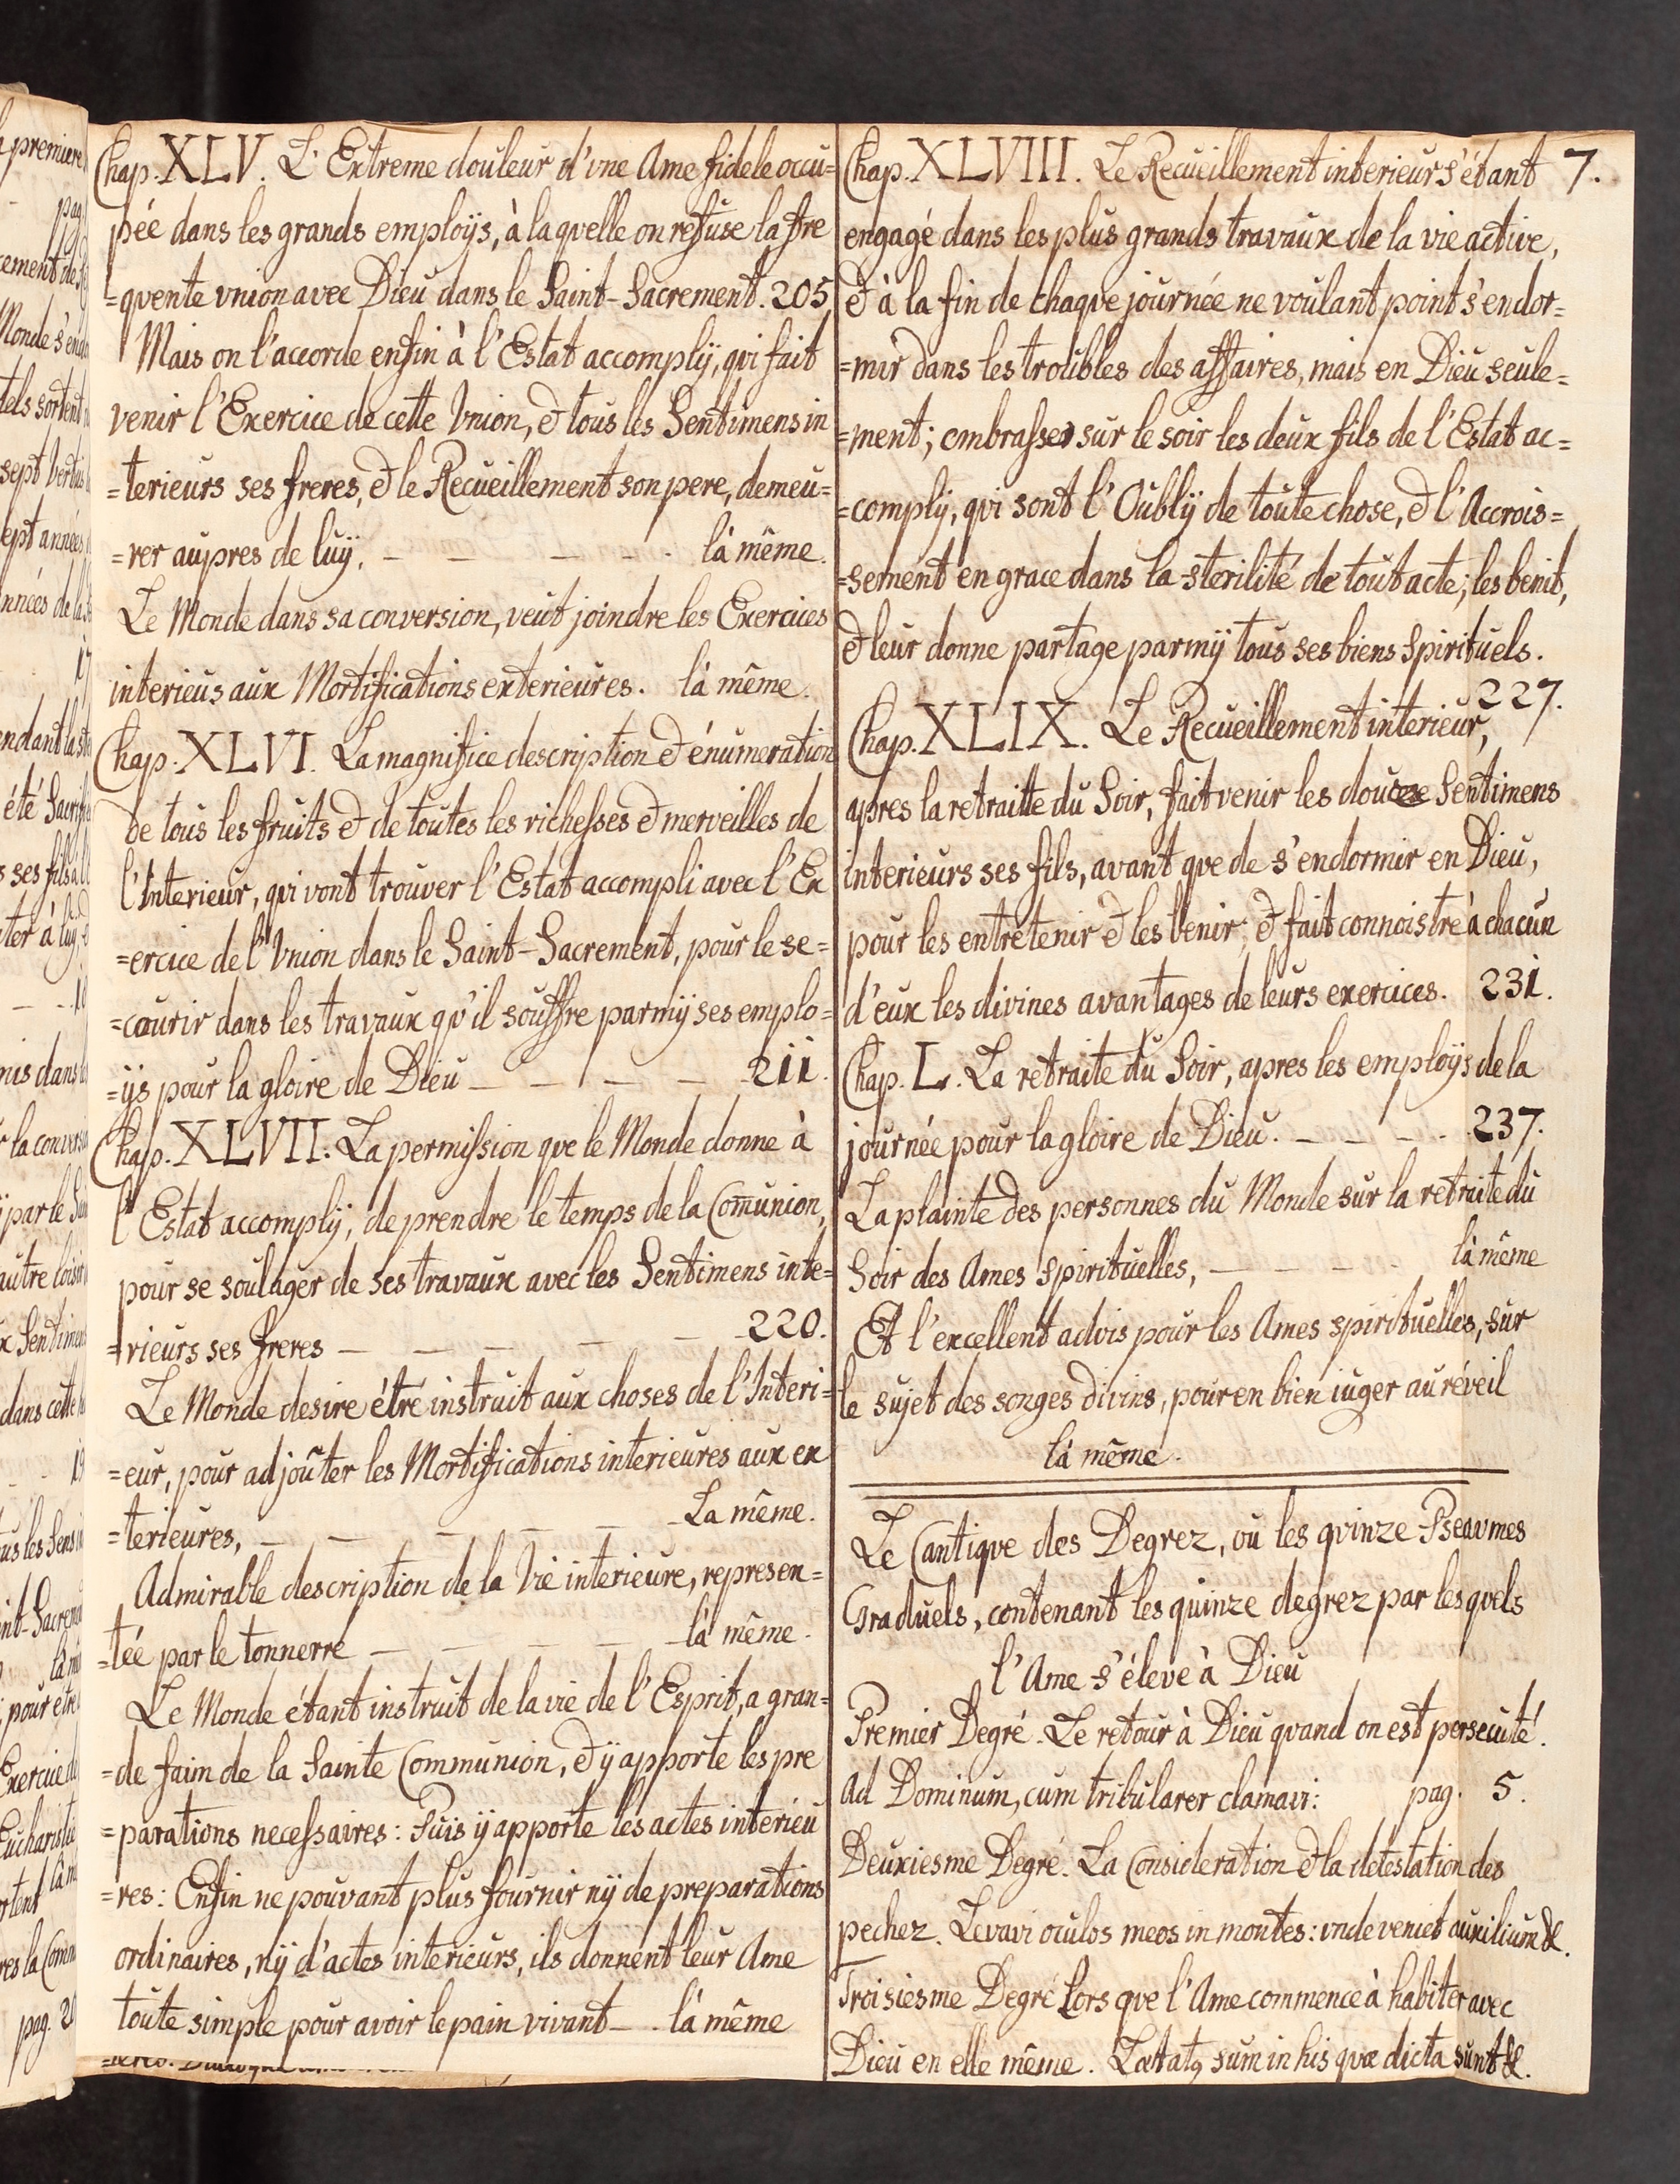 Chap. XLV. L'Extreme douleur d'vne Ame fidele occu=
pée dans les grands employs, à laquelle on refuse la fre
=quente vnion avec Dieu dans le Saint-Sacrement. 205
Mais on l'accorde enfin à l'Estat accomplÿ, qui fait
venir l'Exercice de cette Vnion, & tous les Sentimens in
=terieurs ses freres, & le Recueillement son pere, demeu=
=rer aupres de luÿ. — — — — là même.
Le Monde dans sa conversion, veut joindre les Exercices
interieus aux Mortifications exterieures. là même.
Chap. XLVI. La magnifice description & énumeration
de tous les fruits & de toutes les richesses & merveilles de
l'Interieur, qui vont trouver l'Estat accompli avec l'Ex
=ercice de l'Vnion dans le Saint-Sacrement, pour le se=
=courir dans les travaux qu'il souffre parmÿ ses emplo=
=ÿs pour la gloire de Dieu — — — — 211.
Chap. XLVII. La permission que le Monde donne à
l'Estat accomplÿ, de prendre le temps de la Com̄union,
pour se soulager de ses travaux avec les Sentimens inte=
=rieurs ses freres — — — — — 220.
Le Monde desire étre instruit aux choses de l'Interi=
=eur, pour adjoûter les Mortifications interieures aux ex
=terieures, — — — — — La même.
Admirable description de la Vie interieure, represen=
=tée par le tonnerre — — — — — là même.
Le Monde étant instruit de la vie de l'Esprit, a gran=
=de faim de la Sainte Communion, & ÿ apporte les pre
=parations necessaires: Puis ÿ apporte les actes interieu
=res: Enfin ne pouvant plus fournir nÿ de preparations
ordinaires, nÿ d'actes interieurs, ils donnent leur Ame
toute simple pour avoir le pain vivant — . là même
7.
Chap. XLVIII. Le Recueillement interieur s'étant
engagé dans les plus grands travaux de la vie active,
& à la fin de chaque journée ne voulant point s'endor=
=mir dans les troubles des affaires, mais en Dieu seule=
=ment; embrasser sur le soir les deux fils de l'Estat ac=
=complÿ, qui sont l'Oublÿ de toute chose, & l'Accrois=
=sement en grace dans la sterilité de tout acte; les benit,
& leur donne partage parmÿ tous ses biens Spirituels.
227.
Chap. XLIX. Le Recueillement interieur,
apres la retraitte du Soir, fait venir les douze Sentimens
interieurs ses fils, avant que de s'endormir en Dieu,
pour les entretenir & les benir; & fait connoistre à chacun
d'eux les divines avantages de leurs exercices. 231.
Chap. L. La retraite du Soir, apres les employs de la
journée pour la gloire de Dieu. — — — — 237.
La plainte des personnes du Monde sur la retraite du
Soir des Ames Spirituelles, — — — — là même
Et l'excellent advis pour les Ames spirituelles, sur
le sujet des songes divins, pour en bien iuger au réveil
là même.
Le Cantique des Degrez, ou les quinze Pseaumes
Graduels, contenant les quinze degrez par lesquels
l'Ame s'éleve à Dieu
Premier Degré. Le retour à Dieu quand on est persecuté.
Ad Dominum, cum tribularer clamavi: pag. 5.
Deuxiesme Degré. La Consideration & la detestation des
pechez. Levavi oculos meos in montes: vnde veniet auxilium &.
Troisiesme Degré Lors que l'Ame commence à habiter avec
Dieu en elle même. Lætatꝯ sum in his quæ dicta sunt &.